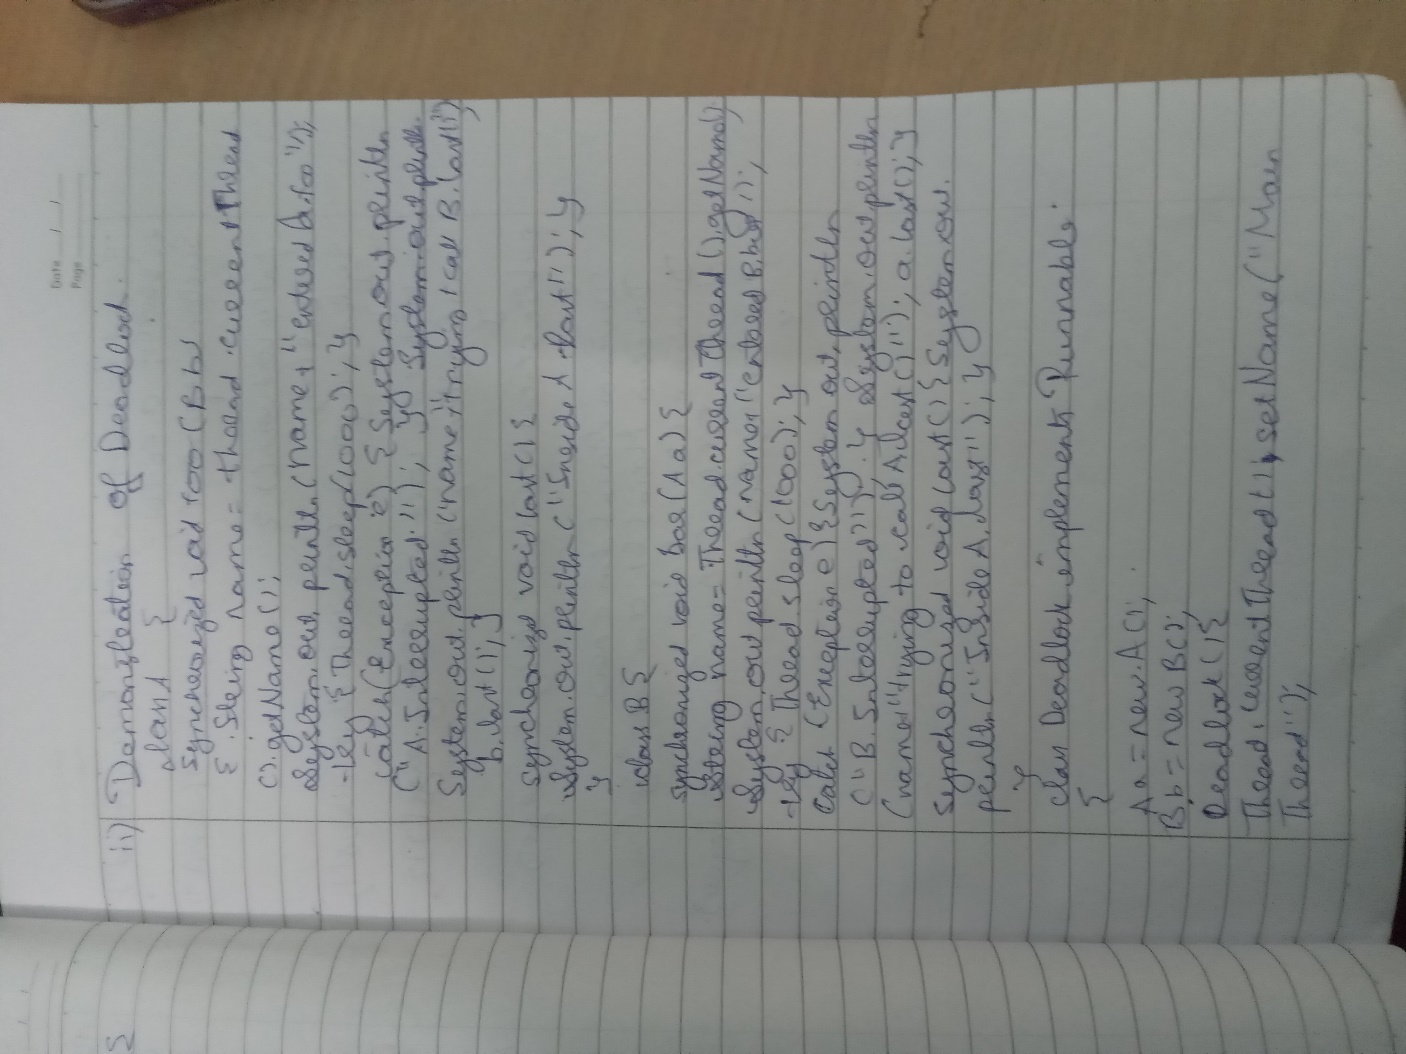 Date / /
Page
ii) Demonstration of Deadlock.
class A {
synchronized void foo (B b)
{ String name = thread.currentThread
().getName();
System.out.println(name + "entered A.foo");
try {Thread.sleep(1000);}
catch(Exception e) {System.out.println
("A.Interrupted"); } System.out.println
System.out.println(name + "trying to call B.last()");
b.last();}
synchronized void last(){
System.out.println("Inside A.last");}
}
class B{
synchronized void bar(A a){
String name = Thread.currentThread().getName();
System.out.println(name + "entered B.bar");
try { Thread.sleep(1000);}
catch (Exception e){System.out.println
("B.Interrupted");} System.out.println
(name + "trying to call A.last()"); a.last();}
synchronized void last(){System.out.
println("Inside A.last");}
}
class Deadlock implements Runnable
{
A a = new A();
B b = new B();
Deadlock(){
Thread.currentThread().setName("Main
Thread");